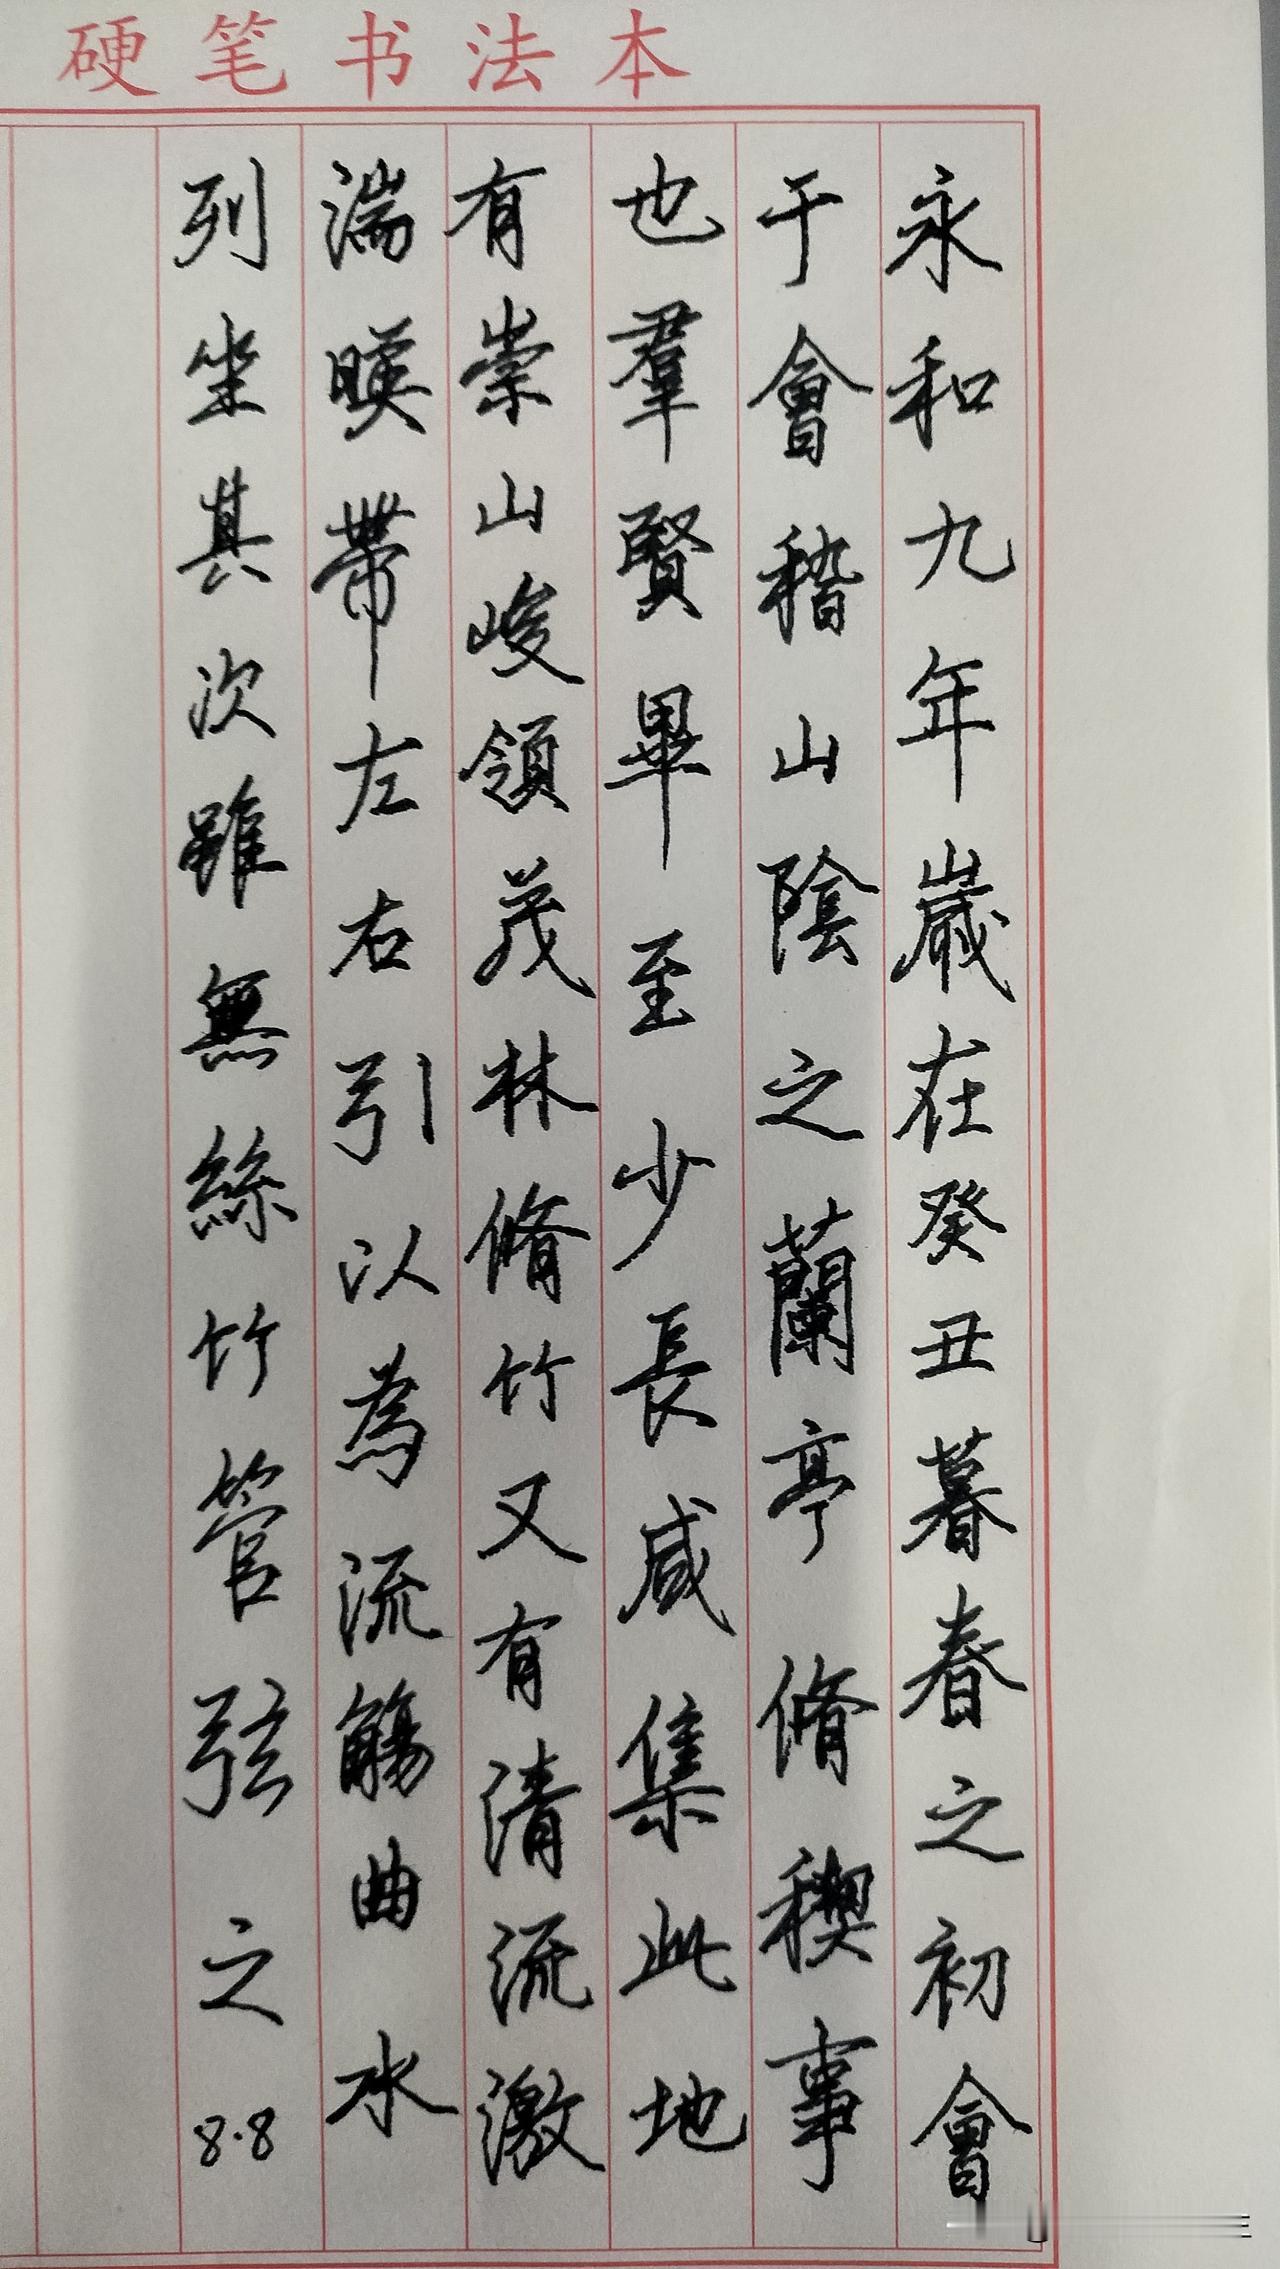 硬笔书法本
永和九年歲在癸丑暮春之初會
于會稽山陰之蘭亭脩稧事
也羣賢畢至少長咸集此地
有崇山峻領茂林脩竹又有清流激
湍暎帶左右引以為流觴曲水
列坐其次雖無絲竹管弦之
8.8